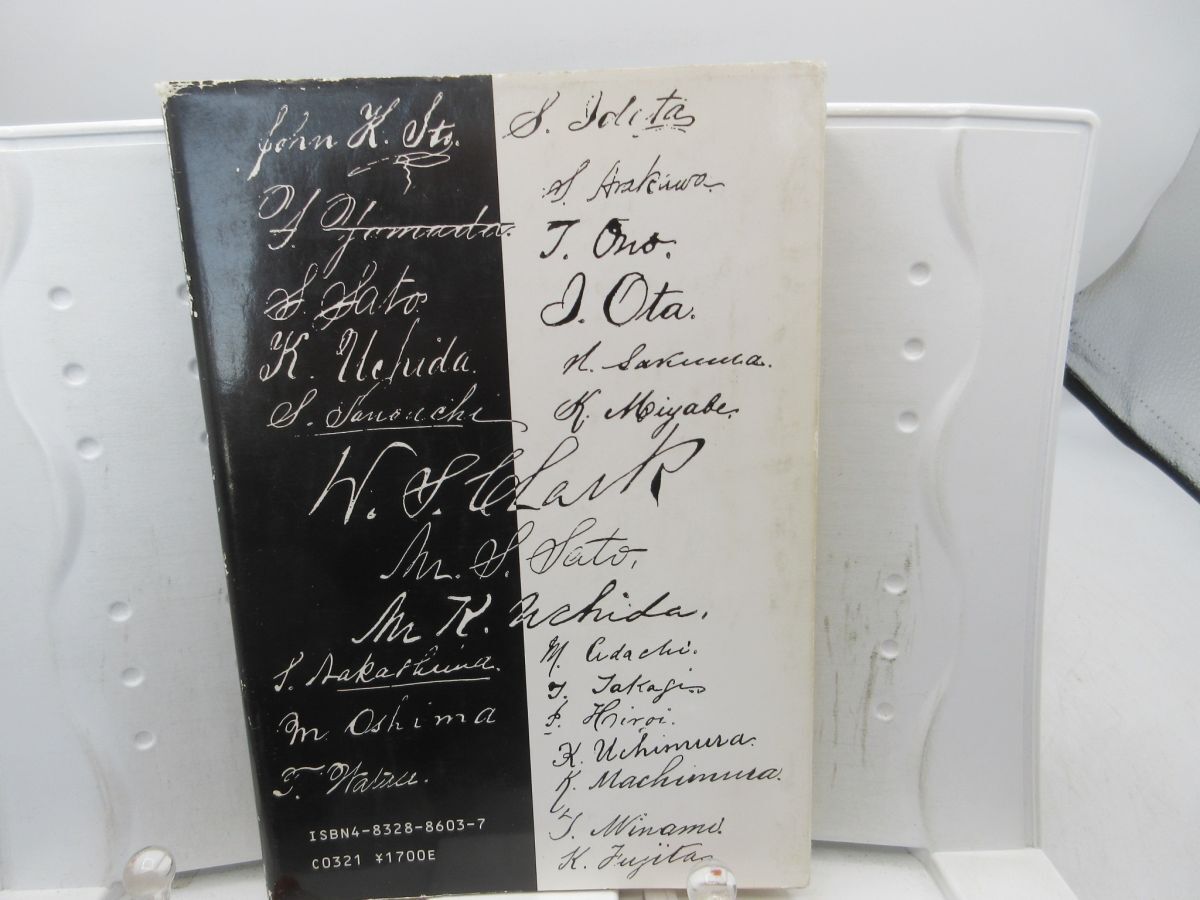 John K. Ito.
S. Ideta
Y. Yamada.
S. Arakawa
T. Ono.
S. Sato
I. Ota.
K. Uchida.
N. Sakuma.
S. Tanouchi
K. Miyabe.
W. S. Clark
Mr. S. Sato.
Mr K. Uchida.
M. Adachi.
S. Nakashima.
T. Takagi
M Oshima
I. Hiroi.
K. Uchimura.
T. Watse.
K. Machimura.
ISBN4-8328-8603-7
T. Minami.
C0321 ¥1700E
K. Fujita